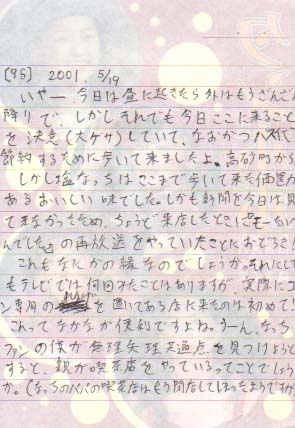 [95] 2001. 5/19
いやー、今日は昼に起きたら外はもうざんざん
降りで、しかしそれでも今日ここに来ること
を決意(大ゲサ)していて、なおかつバス代
節約するために歩いて来ましたよ。高砂町から
しかし塩なっちはここまで歩いて来た価値が
あるおいしい味でした。しかも新聞を今日は見
てまなかったため、ちょうど来店したときに『モーむい
んでした』の再放送をやっていたことにおどろき!
これもなにかの縁なのでしょうか。それにして
もテレビでは何回みたことはありますが、実際に
ン専用の を置いてある店に来たのは初めて!
これってなかなか便利ですよね。うーん、なっち
ファンの僕が無理矢理共通点を見つけようと
すると、親が喫茶店をやっているってことでしょう
か。(なっちのパパの喫茶店はもう閉店してしまったようですが